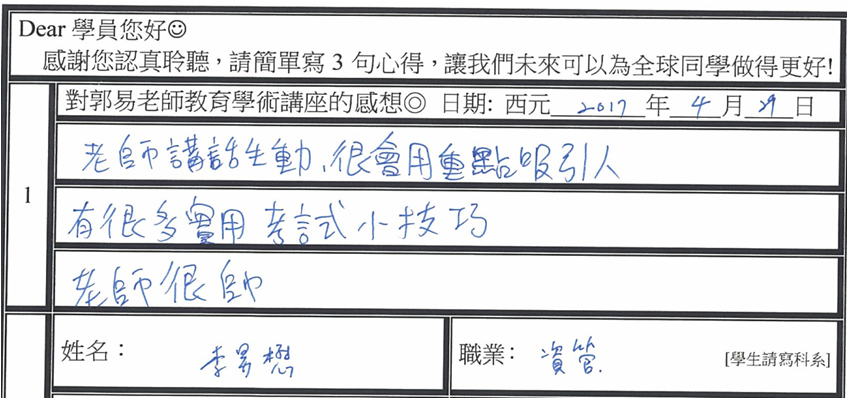 Dear 學員您好☺
感謝您認真聆聽，請簡單寫 3 句心得，讓我們未來可以為全球同學做得更好!
對郭易老師教育學術講座的感想◎ 日期: 西元 2017 年 4 月 29 日
1
老師講話生動、很會用重點吸引人
有很多實用考試小技巧
老師很帥
姓名： 李易懋
職業： 資管 [學生請寫科系]